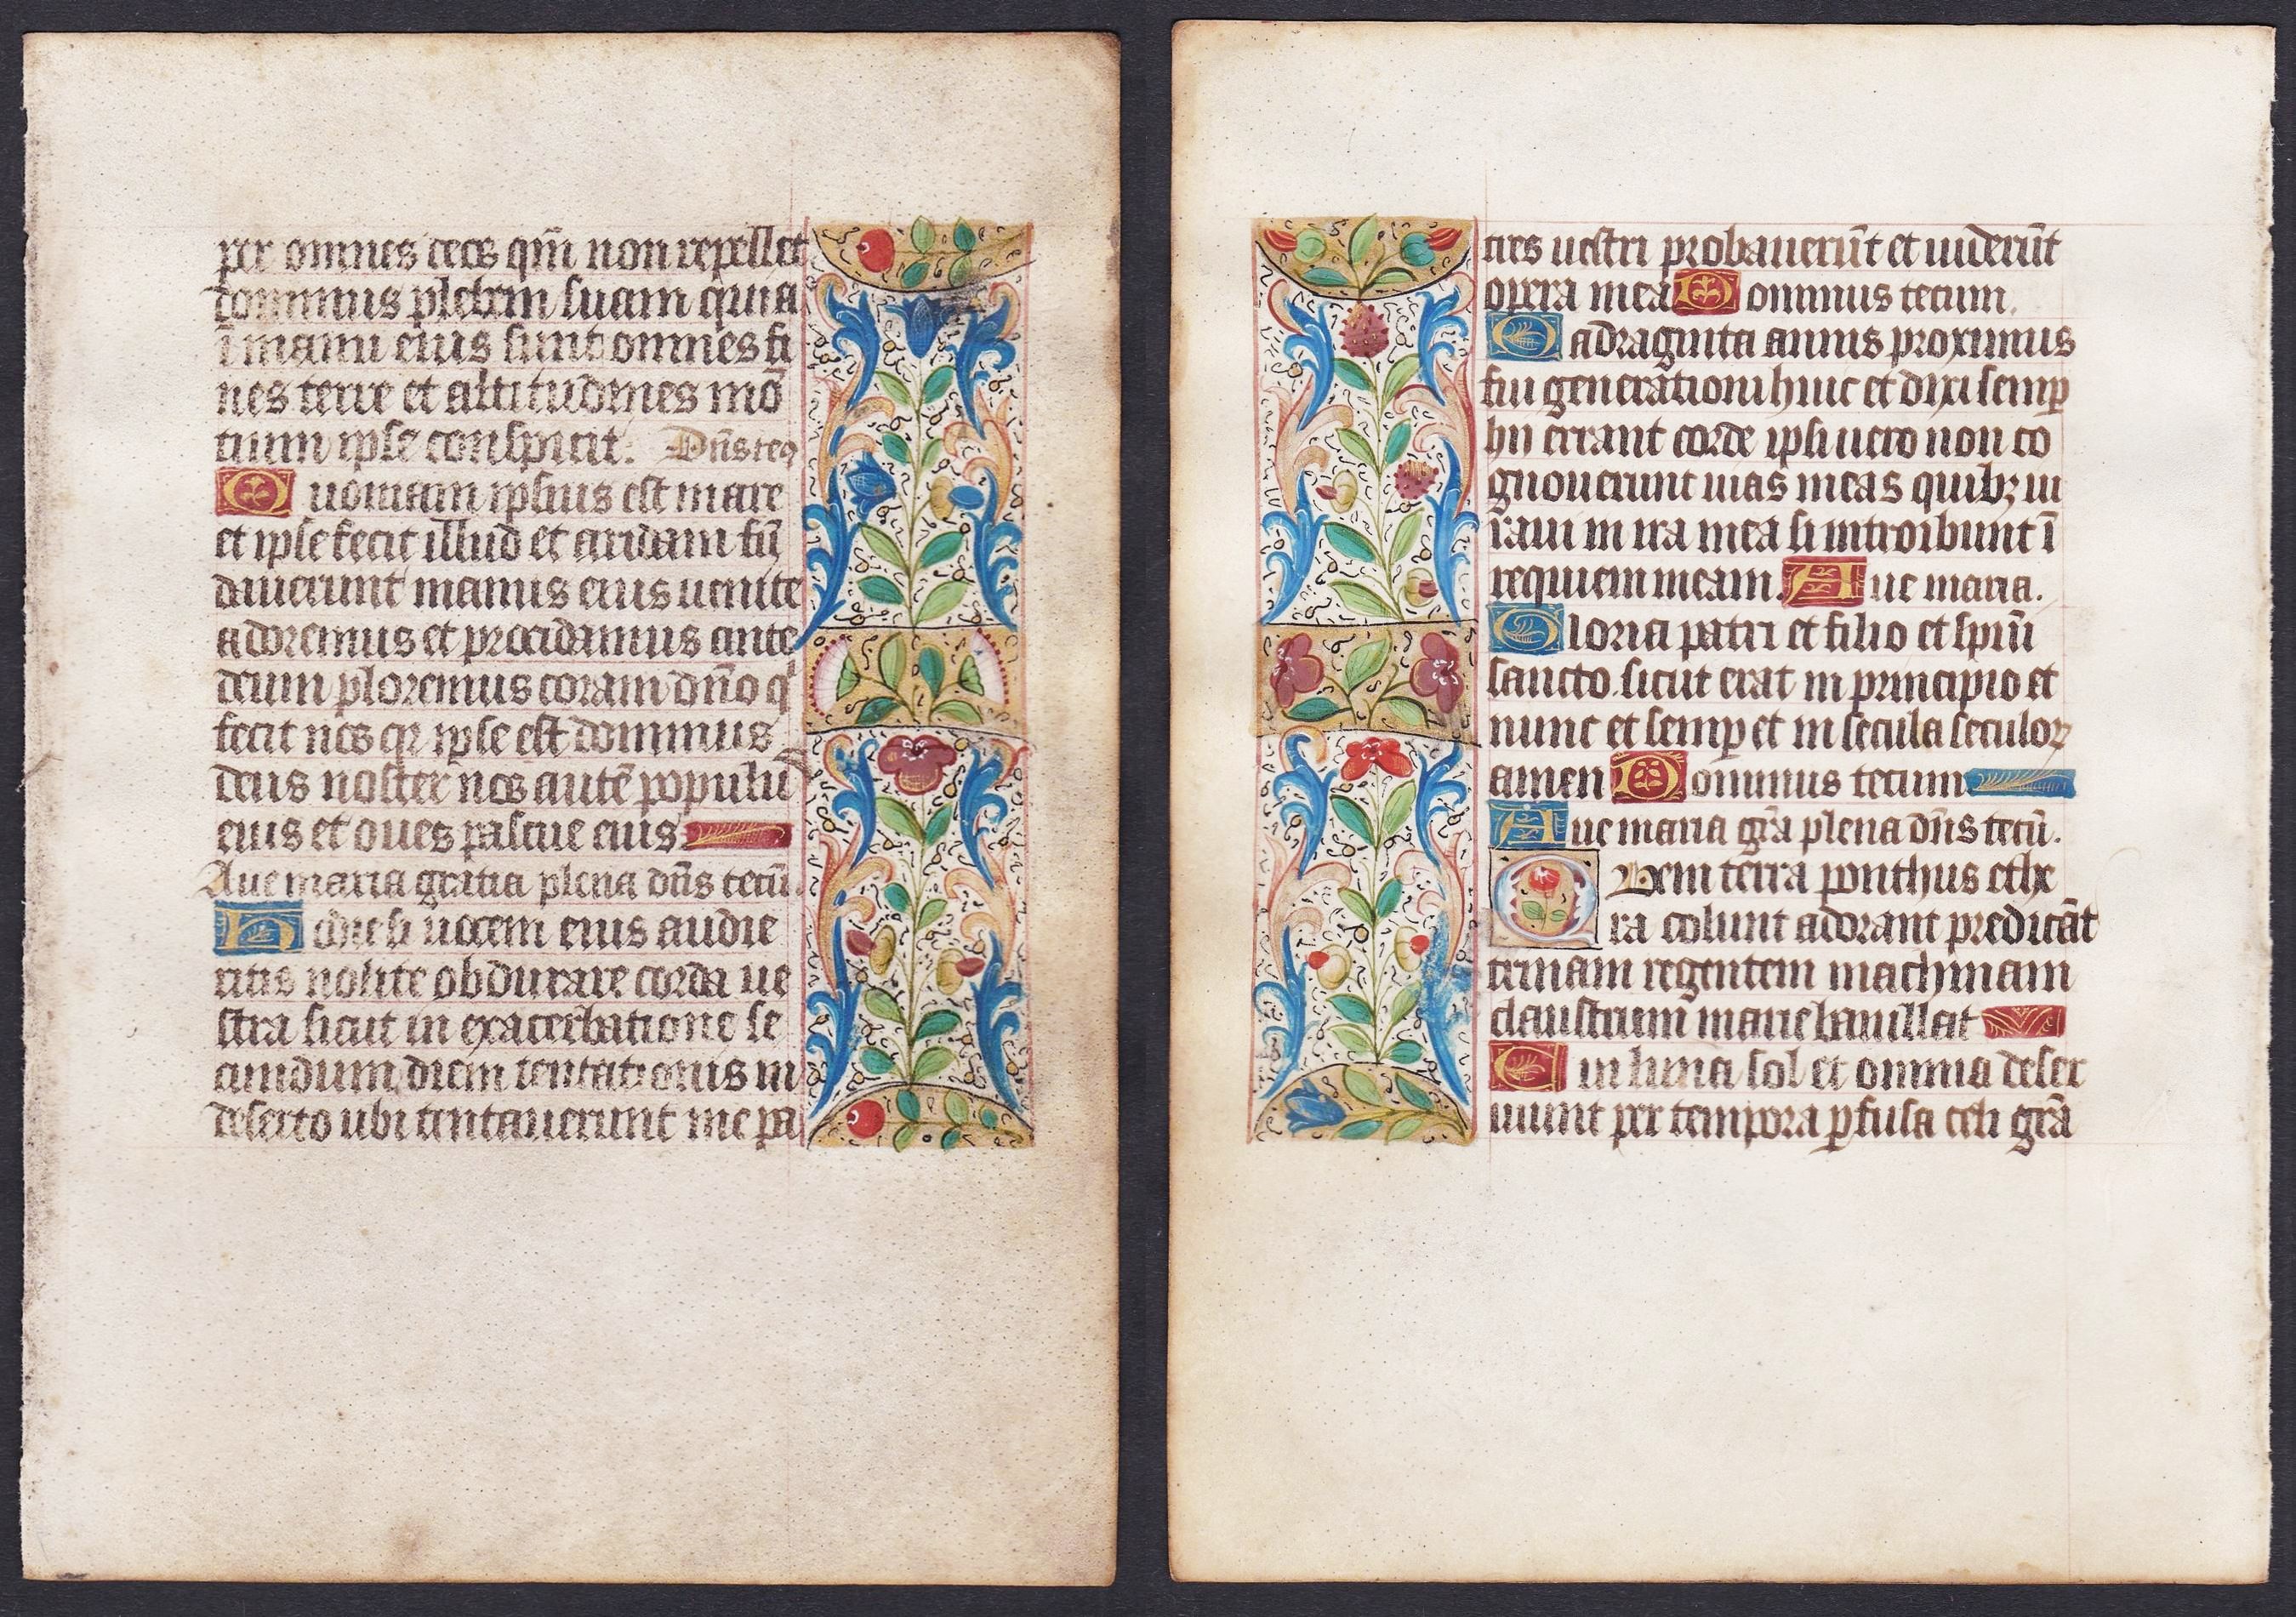 per omnes deos qm̄ non repellet
dominus plebem suam quia
ī manu eius sunt omnes fi
nes terre et altitudines mō
tium ipse conspicit. Dn̄s teq
Quoniam ipsius est mare
et ipse fecit illud et aridam fū
dauerunt manus eius uenite
adoremus et procidamus ante
deum ploremus coram dn̄o q
fecit nos qr ipse est dominus
deus noster nos autē populus
eius et oues pascue eius
Aue maria gratia plena dn̄s tecū.
Hodie si uocem eius audie
ritis nolite obdurare corda ue
stra sicut in exacerbatione se
cundum diem tentationis in
deserto ubi tentauerunt me pa
tres uestri probauerūt et uiderūt
opera mea Dominus tecum.
Quadraginta annis proximus
fui generationi huic et dixi semꝑ
hii errant corde ipsi uero non co
gnouerunt uias meas quibꝫ iu
raui in ira mea si introibunt ī
requiem meam. Aue maria.
Gloria patri et filio et spūi
sancto sicut erat in principio et
nunc et semꝑ et in secula seculoꝝ
amen Dominus tecum
Aue maria gr̄a plena dn̄s tecū.
Quem terra ponthus ethe
ra colunt adorant predicāt
trinam regentem machinam
claustrum marie baiullat
Cui luna sol et omnia deser
uiunt per tempora ꝑfusa celi gr̄a